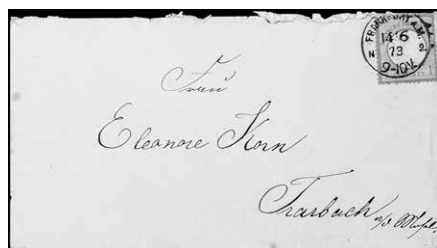 FRANKFURT A.M.
14 6
73
N 2
9-10V.
Frau
Eleonore Korn
Trarbach a/d Mosel.